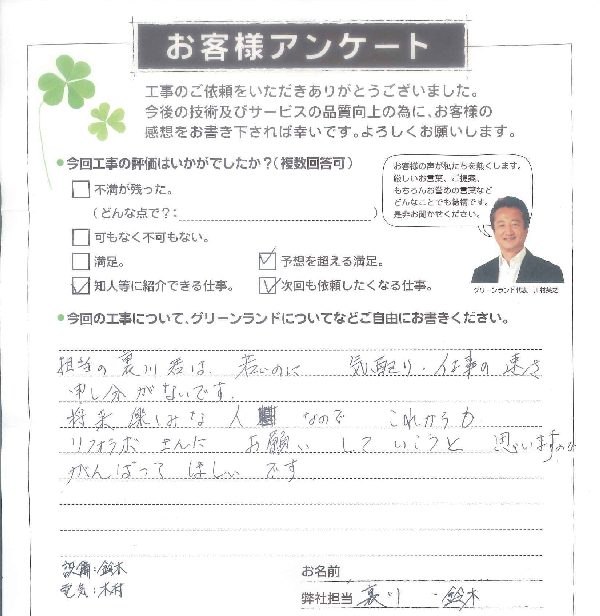 お客様アンケート
工事のご依頼をいただきありがとうございました。
今後の技術及びサービスの品質向上の為に、お客様の
感想をお書き下されば幸いです。よろしくお願いします。
●今回工事の評価はいかがでしたか?(複数回答可)
不満が残った。
(どんな点で?: )
可もなく不可もない。
満足。
予想を超える満足。
知人等に紹介できる仕事。
次回も依頼したくなる仕事。
お客様の声が私たちを熱くします。
厳しいお言葉、ご提案、
もちろんお誉めの言葉など
どんなことでも結構です。
是非お聞かせください。
グリーンランド代表
●今回の工事について、グリーンランドについてなどご自由にお書きください。
担当の裏川君は、若いのに 気配り・仕事の速さ
申し分がないです。
将来楽しみな人 なので これからも
リフォラボさんに お願い して いこうと 思いますので
がんばって ほしい です
設備:鈴木
電気:木村
お名前
弊社担当 裏川・鈴木